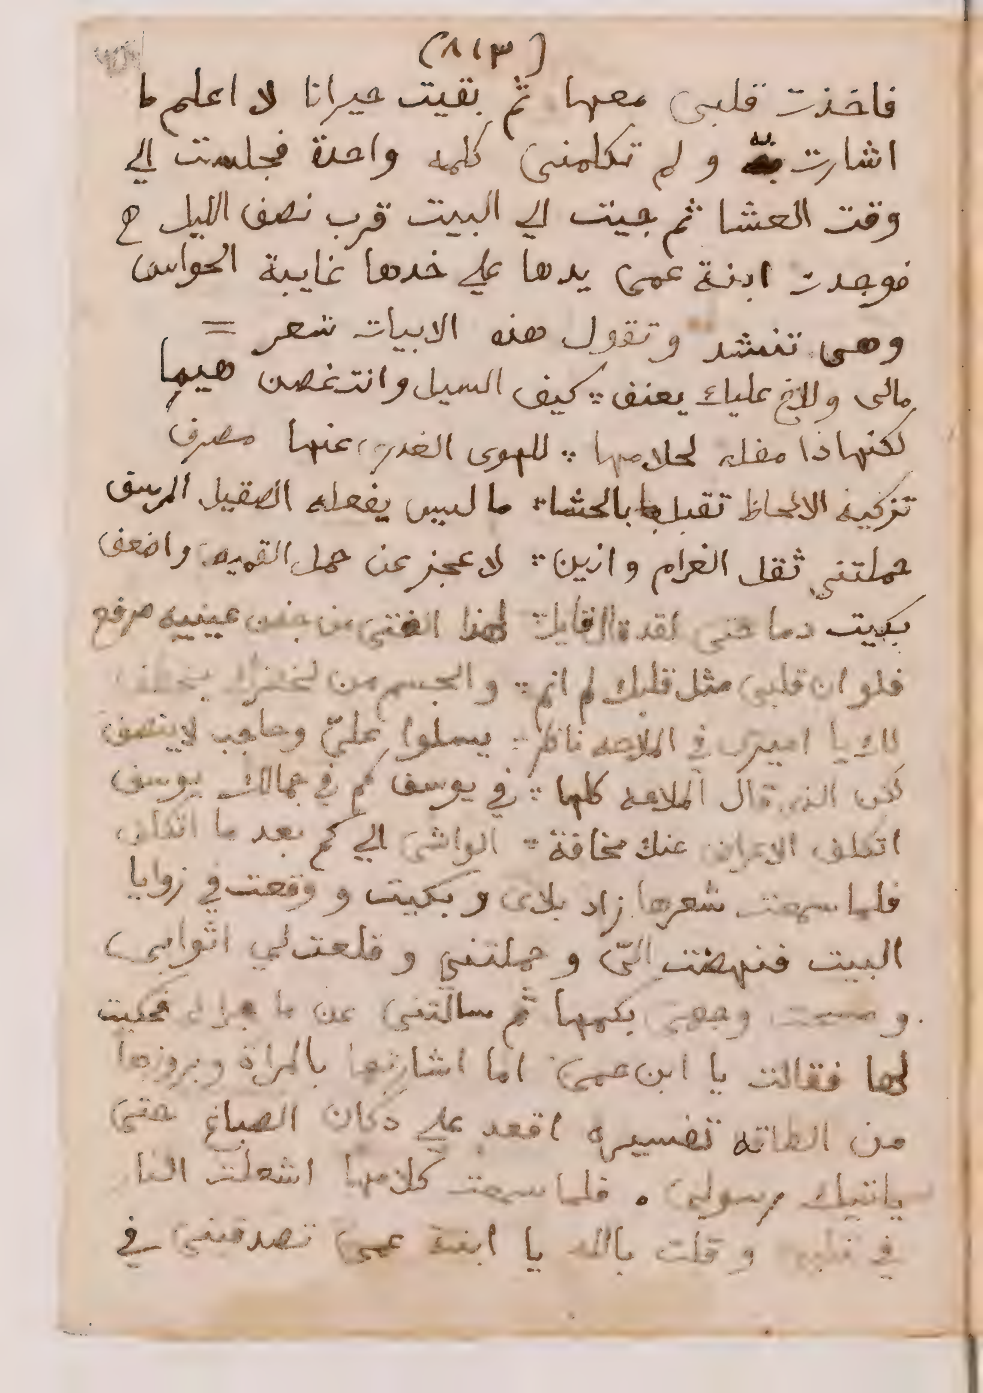 (٨١٣)
فاخذت قلبي معها ثم بقيت حيرانا لا اعلم ما
اشارت به و لم تكلمني كلمه واحدة فجلست الي
وقت العشا ثم جيت الي البيت قرب نصف الليل
فوجدت ابنة عمي يدها علي خدها غايبة الحواس
وهي تنشد و تقول هذه الابيات شعر =
مالي و للاخ عليك يعنف كيف السبيل وانت غصن
لكنها للهوى عنها مصرف
تركية الالحاظ بالحشا ما ليس يفعله الصقيل المرهف
حملتني ثقل الغرام و ازين لا عجز عن حمل القميص واضعف
بكيت دما حتي لقد قال قايل لهذا الفتي من جفن عينيه
فلو ان قلبي مثل قلبك لم انم والجسم من
لك يا اميري في الملاحه ناظر يسلوا عليّ وحاجب لا ينصف
كذب الذي قال الملاحه كلها في يوسف كم في جمالك يوسف
اتكلف الاعراض عنك مخافة الواشي الي كم بعد ما
فلما سمعت شعرها زاد بلاي و بكيت و وقعت في زوايا
البيت فنهضت اليّ و حملتني و قلعت لي اثوابي
و مسحت وجهي بكمها ثم سالتني عن ما جرا لي فحكيت
لها فقالت يا ابن عمي اما اشارتها بالمراة وبروزها
من الطاقه تفسيره اقعد علي دكان الصباغ حتي
ياتيك رسولي . فلما سمعت كلامها اشعلت النار
في قلبي و قلت بالله يا ابنة عمي تصدقيني في